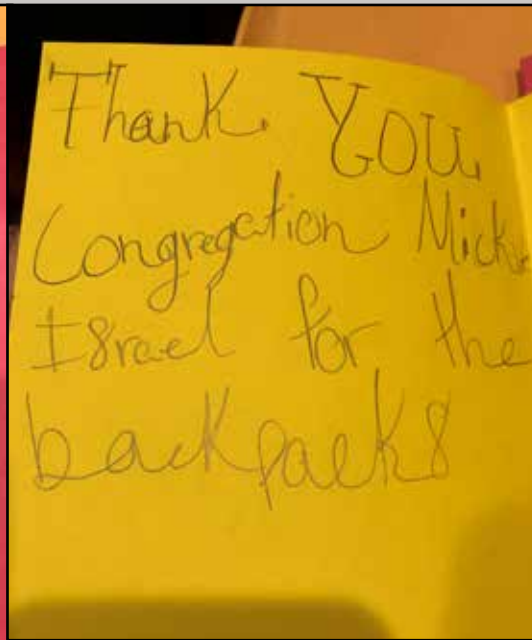 Thank YOU
Congregation Micke
Israel for the
backpacks